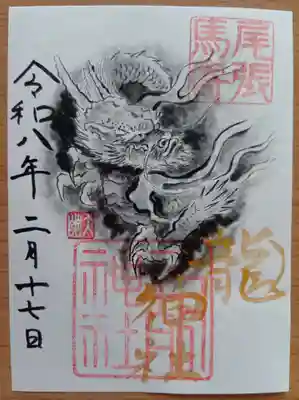 尾張
馬寄
龍
神社
神社
令和八年 二月十七日